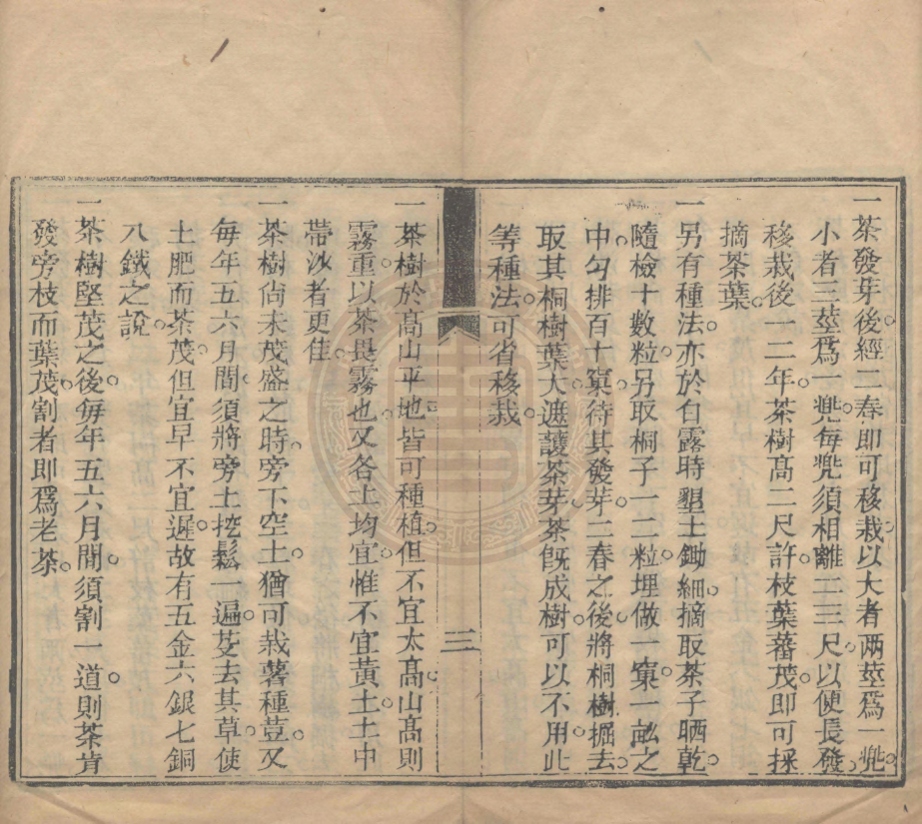 一茶發芽後經二春即可移栽以大者两莖爲一兠
小者三莖爲一兠每兠須相離二三尺以便長發
移栽後一二年茶樹高二尺許枝葉蕃茂即可採
摘茶葉
一另有種法亦於白露時墾土鋤細摘取茶子晒乾
隨檢十數粒另取桐子一二粒埋做一窠一畝之
中勻排百十窠待其發芽二春之後將桐樹掘去
取其桐樹葉大遮護茶芽茶旣成樹可以不用此
等種法可省移栽
三
一茶樹於高山平地皆可種植但不宜太高山高則
霧重以茶畏霧也又各土均宜惟不宜黃土土中
帶沙者更佳
一茶樹尙未茂盛之時旁下空土猶可栽薯種荳又
每年五六月間須將旁土挖鬆一遍芟去其草使
土肥而茶茂但宜早不宜遲故有五金六銀七銅
八鐵之說
一茶樹堅茂之後每年五六月間須割一道則茶肯
發旁枝而葉茂割者即爲老茶